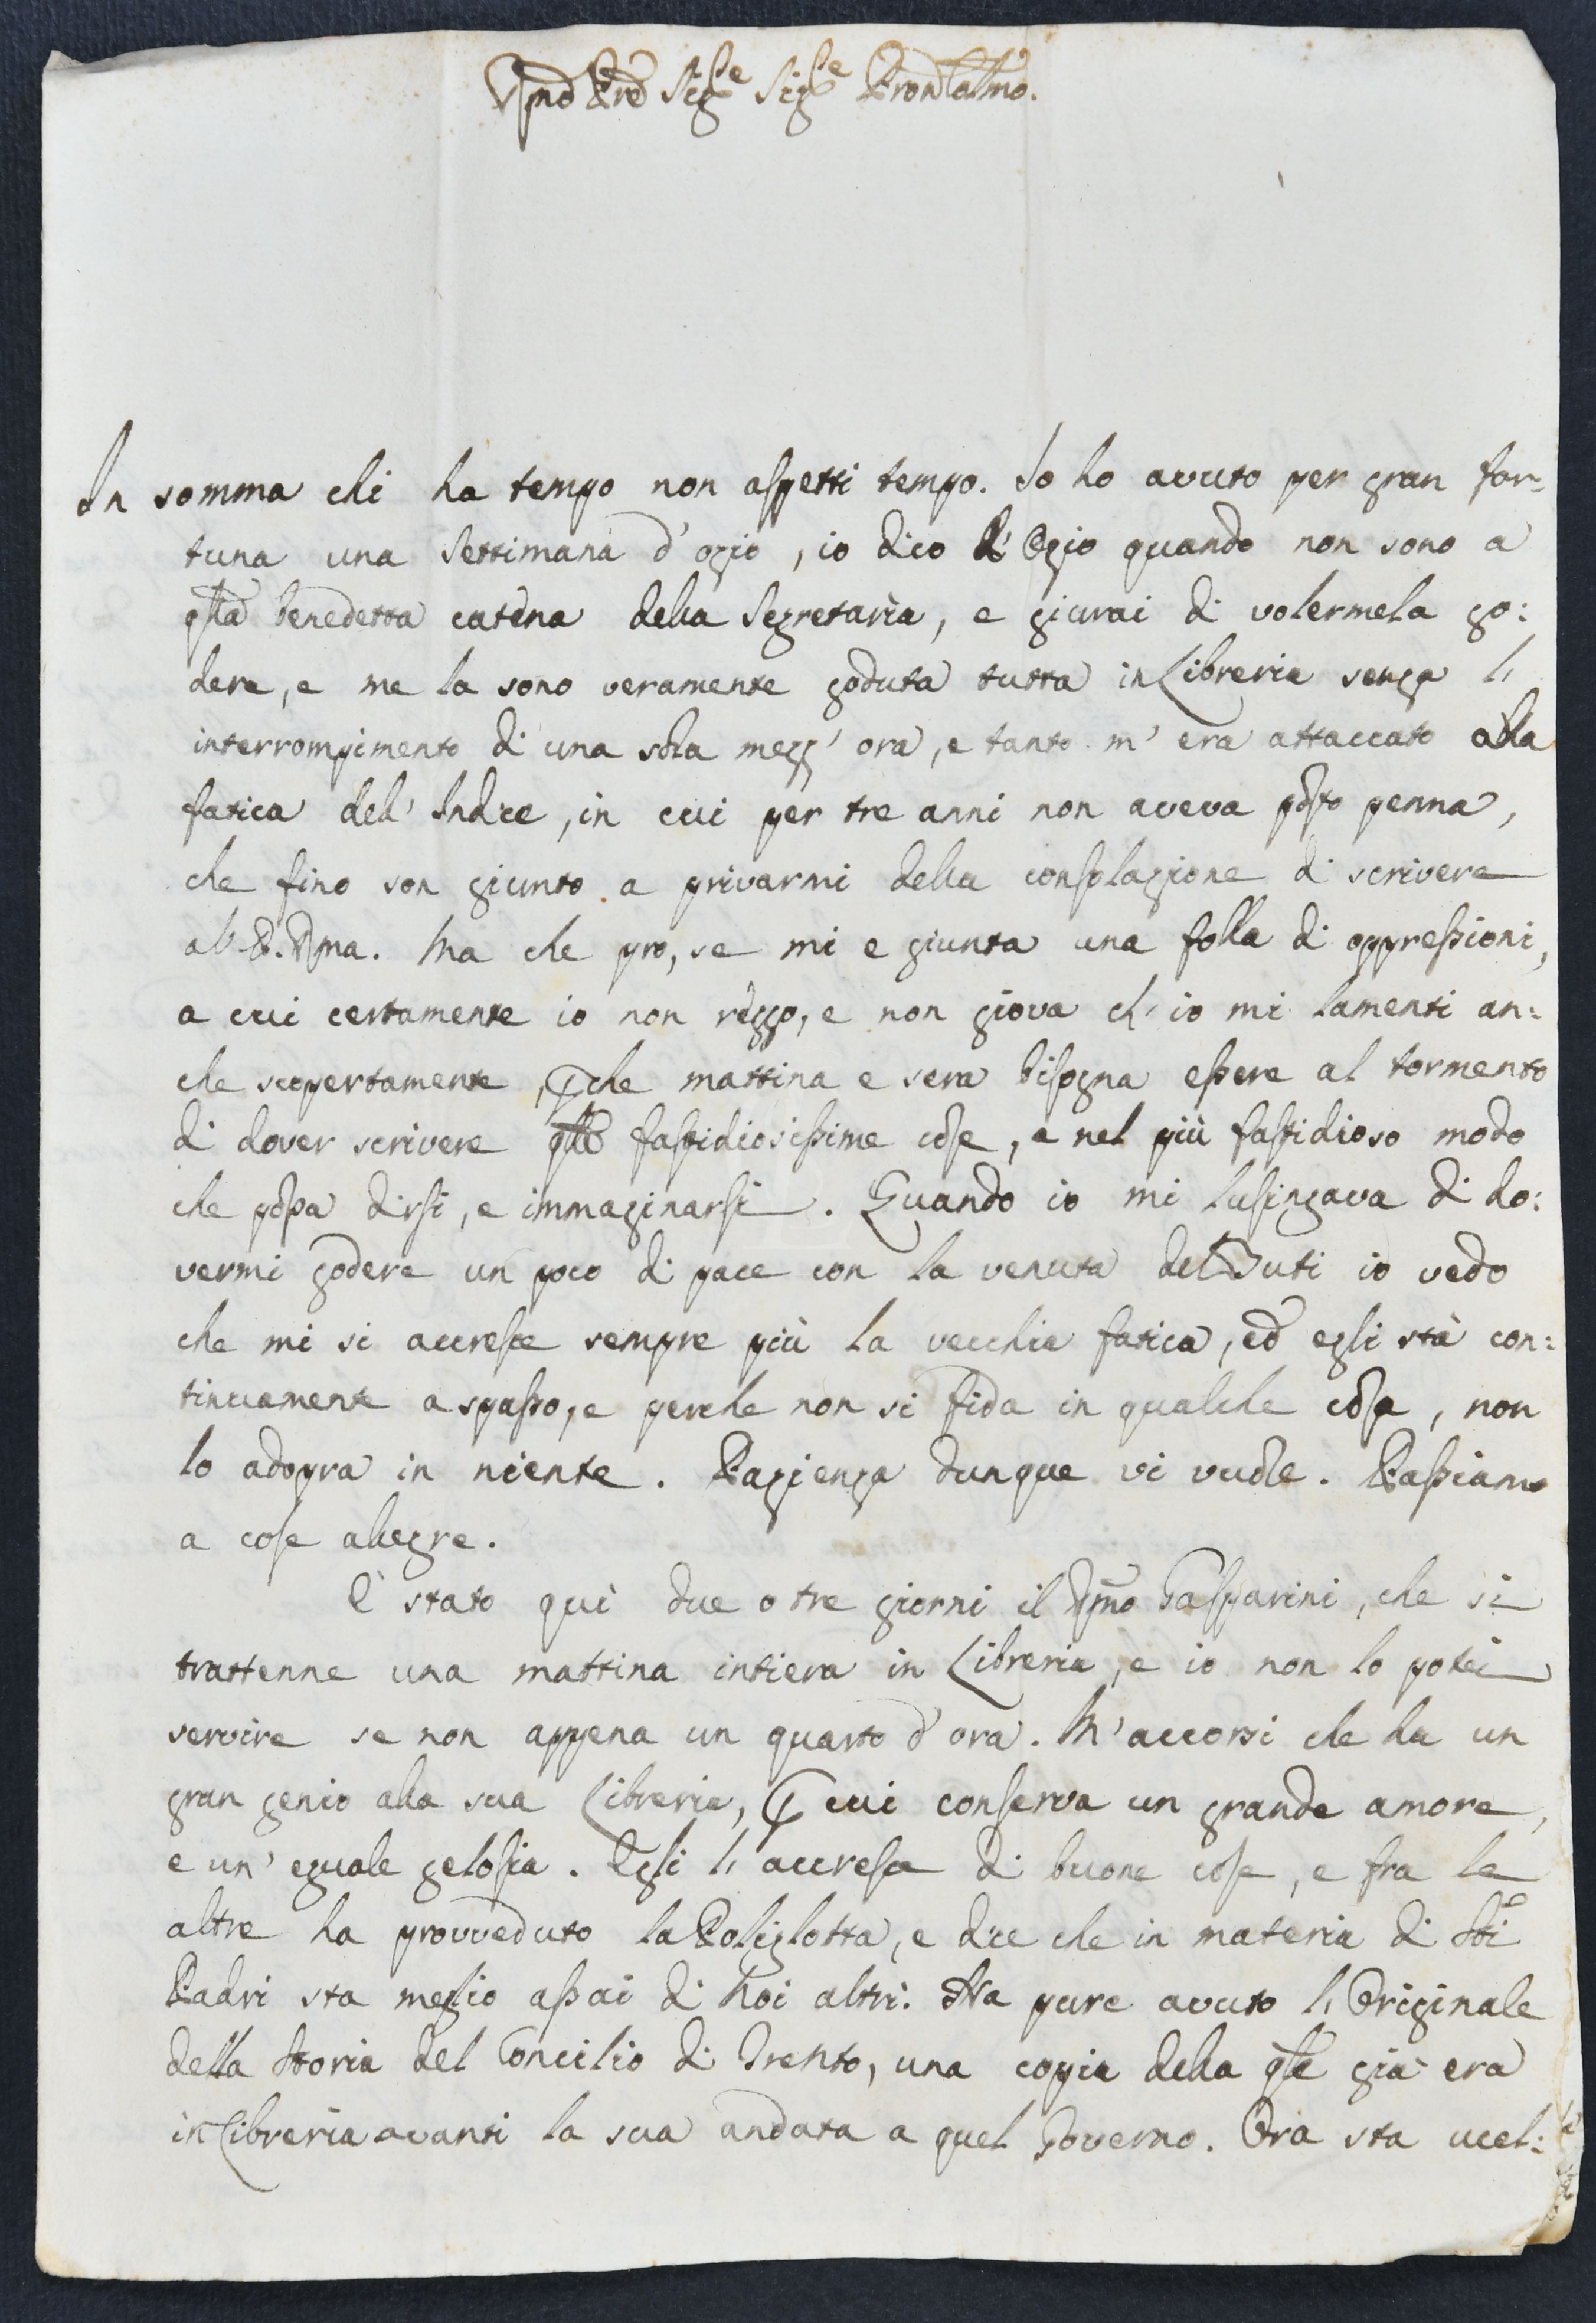 Rmo Pre Sigre Sigre Pron Colmo.
In somma chi ha tempo non aspetti tempo. Io ho avuto per gran for-
tuna una Settimana d'ozio, io dico d'Ozio quando non sono a
qsta benedetta catena della Segretaria, e giurai di volermela go:
dere, e me la sono veramente goduta tutta in Libreria senza l'
interrompimento di una sola mezz'ora, e tanto m'era attaccato alla
fatica dell'Indice, in cui per tre anni non aveva posto penna,
che fino son giunto a privarmi della consolazione di scrivere
a V. P. Rma. Ma che pro, se mi e giunta una folla di oppressioni,
a cui certamente io non reggo, e non giova ch'io mi lamenti an:
che scopertamente, pche mattina e sera bisogna essere al tormento
di dover scrivere qlle fastidiosissime cose, e nel più fastidioso modo
che possa dirsi, e immaginarsi. Quando io mi lusingava di do:
vermi godere un poco di pace con la venuta del Buti io vedo
che mi si accresce sempre più la vecchia fatica, ed egli stà con:
tinuamente a spasso, e perche non si fida in qualche cosa, non
lo adopra in niente. Pazienza dunque vi vuole. Passiamo
a cose allegre.
È stato quì due o tre giorni il Rmo Gasparini, che si
trattenne una mattina intiera in Libreria, e io non lo potei
servire se non appena un quarto d'ora. M'accorsi che ha un
gran genio alla sua Libreria, p cui conserva un grande amore,
e un'eguale gelosia. Egli l'accresce di buone cose, e fra le
altre ha provveduto la Poliglotta, e dice che in materia di Sti
Padri sta meglio assai di Noi altri. Ha pure avuto l'Originale
della Storia del Concilio di Trento, una copia della qle già era
in Libreria avanti la sua andata a quel Governo. Ora sta ucel: